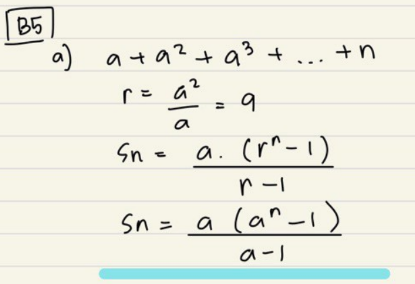 B5
a) a + a² + a³ + ... + n
r = a²/a = a
Sn = a. (rⁿ - 1)/r - 1
Sn = a (aⁿ - 1)/a - 1